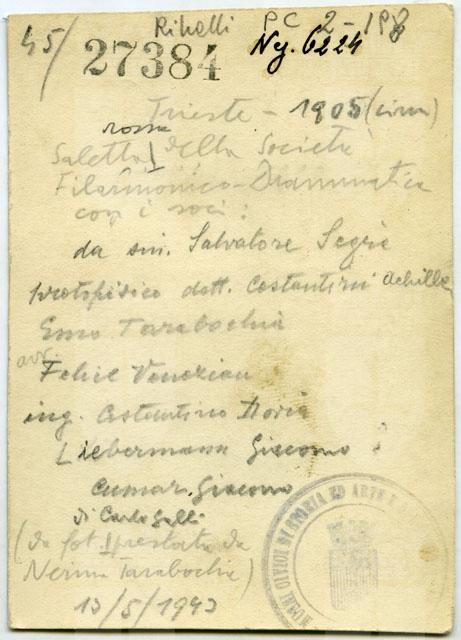 45/ Ribelli PC 2-198
27384 Ny. 6224
Trieste - 1905 (circa)
rossa
Saletta della Società
Filarmonico-Drammatica
con i soci:
da sin. Salvatore Segrè
protofisico dott. Costantini Achille
Enno Tarabochia
avv.
Felice Venezian
ing. Costantino Doria
Liebermann Giacomo
Cumar Giacomo
di Carlo Galli
(da fot. prestata da
Nerina Tarabochia)
13/5/1943
MUSEI CIVICI DI STORIA ED ARTE